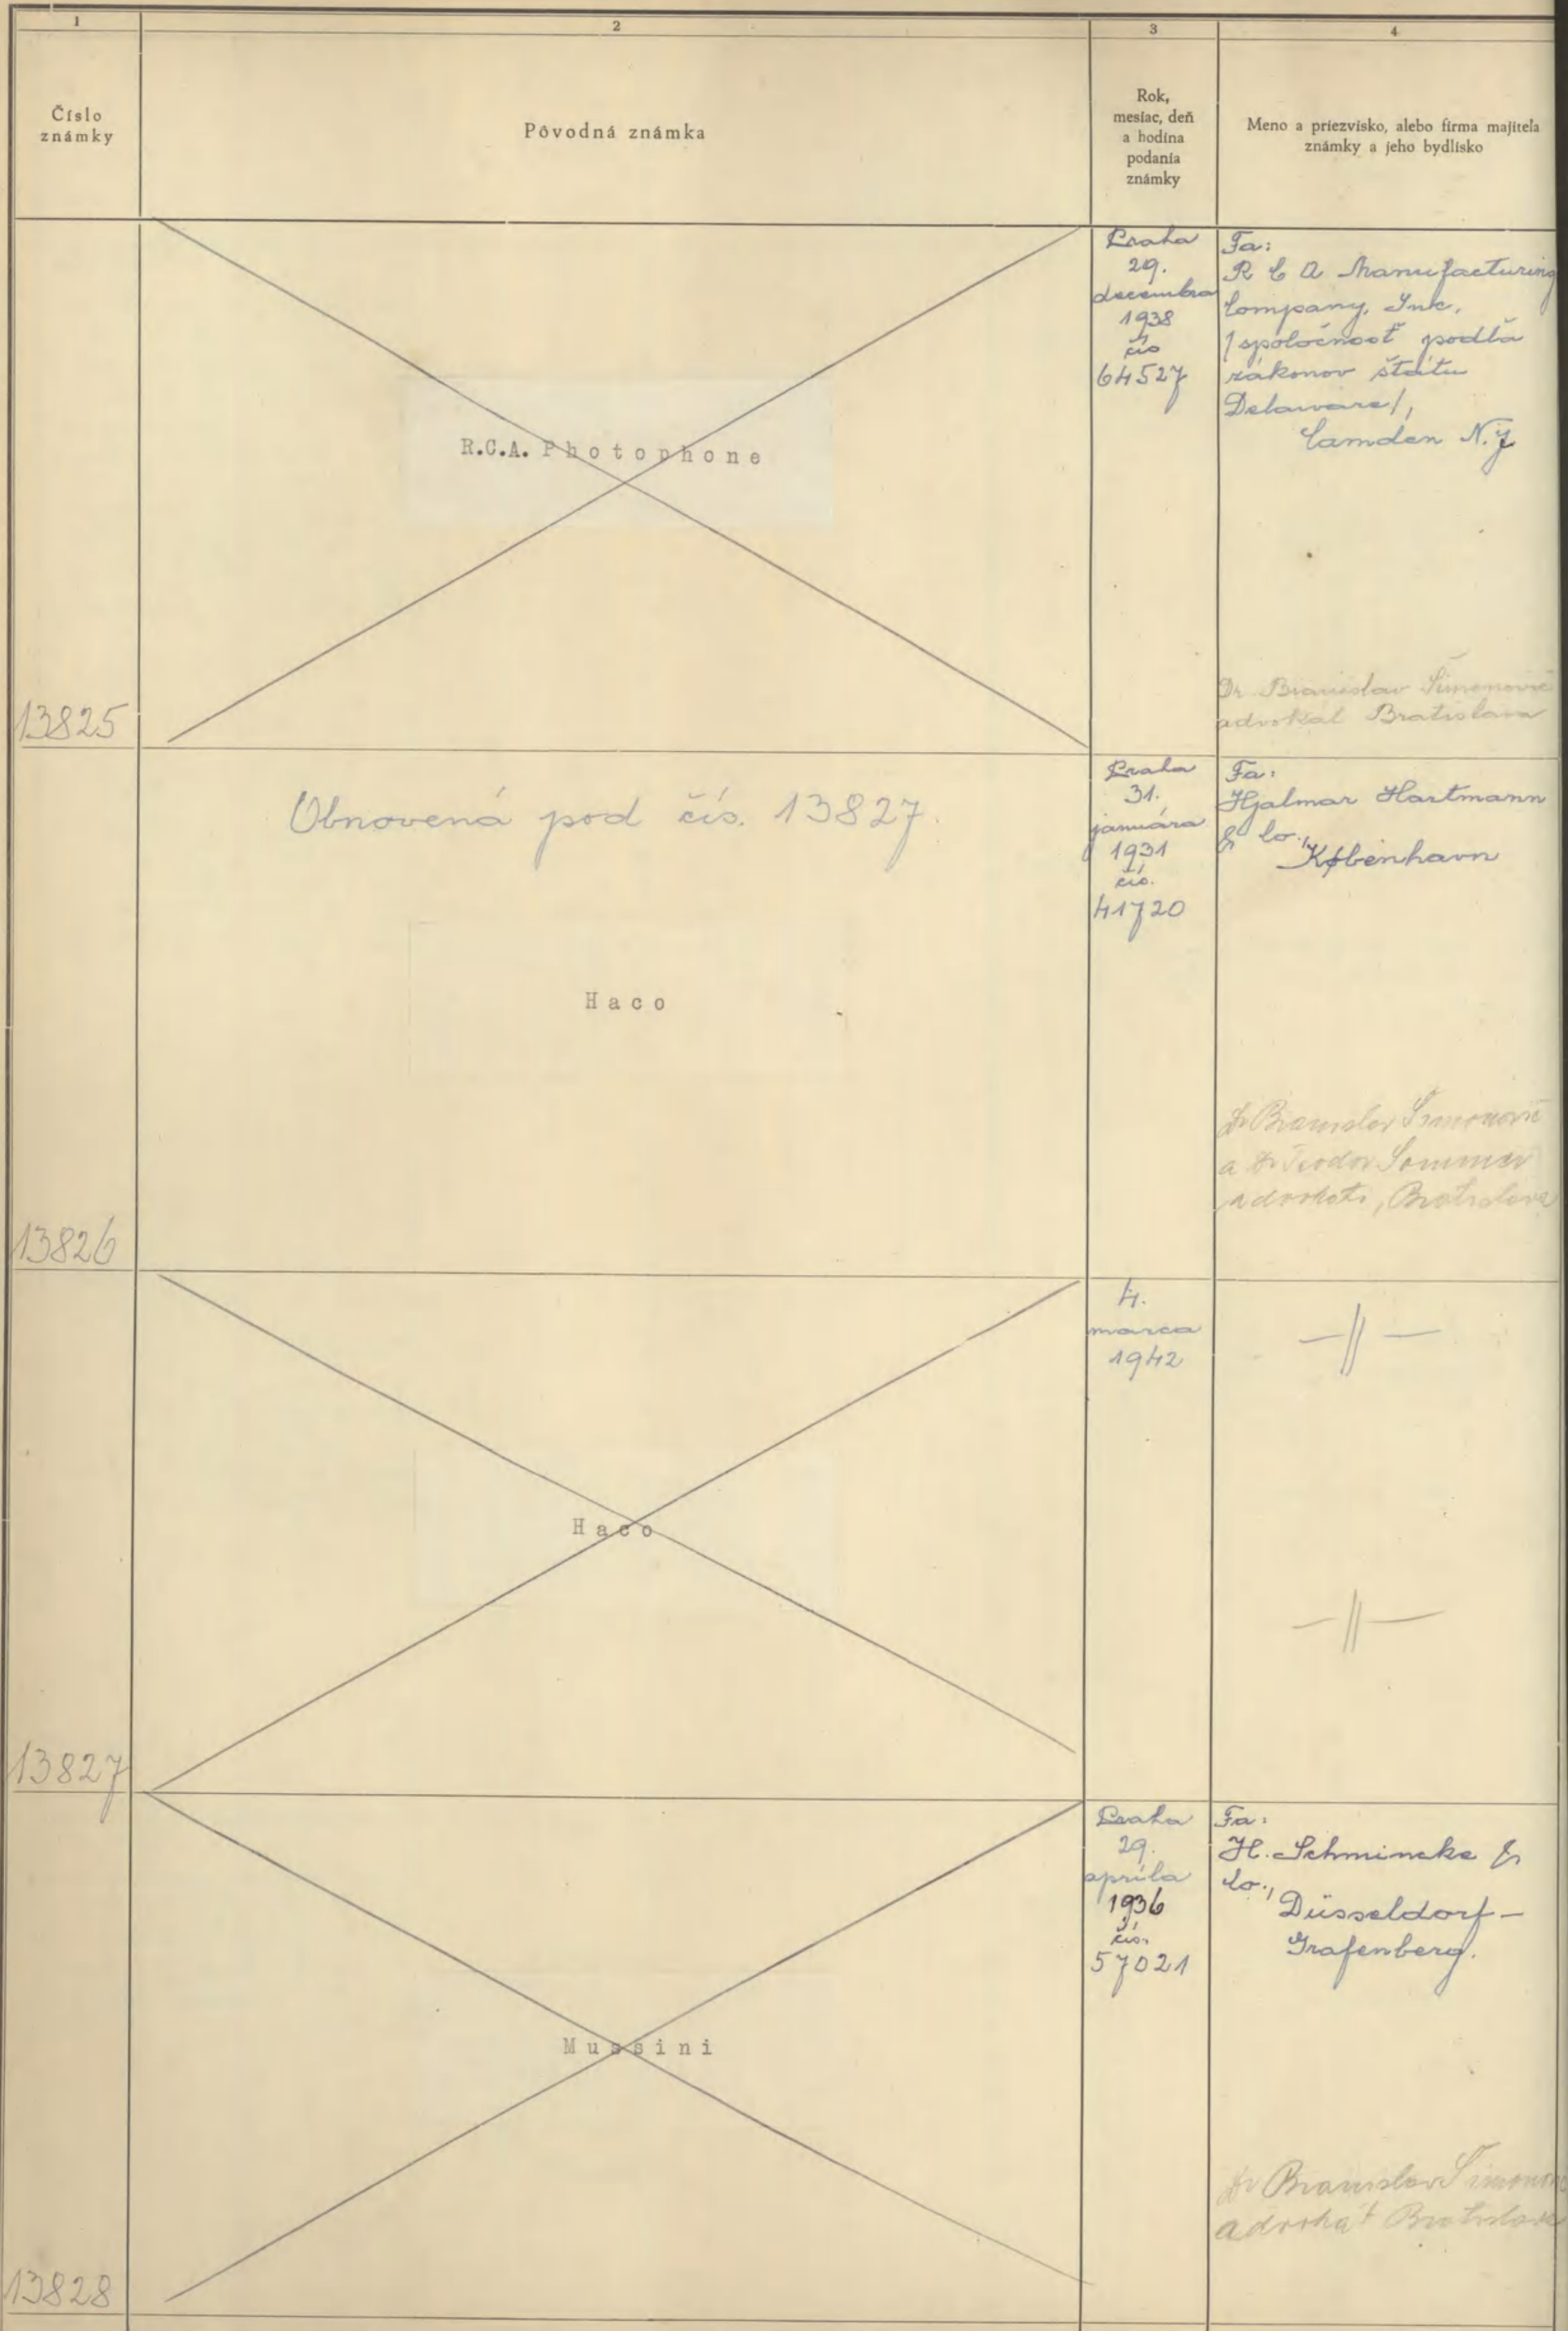 1
2
3
4
Číslo
známky
Pôvodná známka
Rok,
mesiac, deň
a hodina
podania
známky
Meno a priezvisko, alebo firma majiteľa
známky a jeho bydlisko
13825
R.C.A. Photophone
Praha
29.
decembra
1938
čís
64527
Fa:
R C A Manufacturing
Company, Inc.
/spoločnosť podľa
zákonov štátu
Delaware/,
Camden N.J
Dr. Branislav Šimonovič
advokát Bratislava
13826
Obnovená pod čís. 13827.
Haco
Praha
31.
januára
1931
čís.
41720
Fa:
Hjalmar Hartmann
& Co.,
København
Dr Branislav Šimonovič
a Dr Teodor Sommer
advokáti, Bratislava
13827
Haco
4.
marca
1942
—||—
—||—
13828
Mussini
Praha
29.
apríla
1936
čís.
57021
Fa:
H. Schmincke &
Co.,
Düsseldorf-
Grafenberg.
Dr Branislav Šimonovič
advokát Bratislava